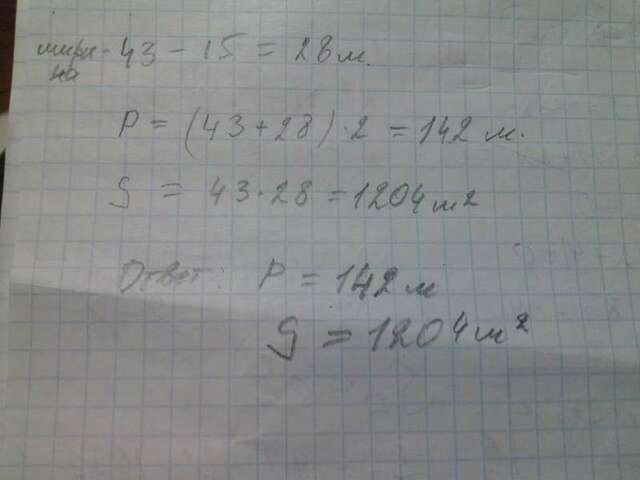 шири- 43 - 15 = 28 м.
на
P = (43 + 28) · 2 = 142 м.
S = 43 · 28 = 1204 m²
Ответ: P = 142 м
S = 1204 m²